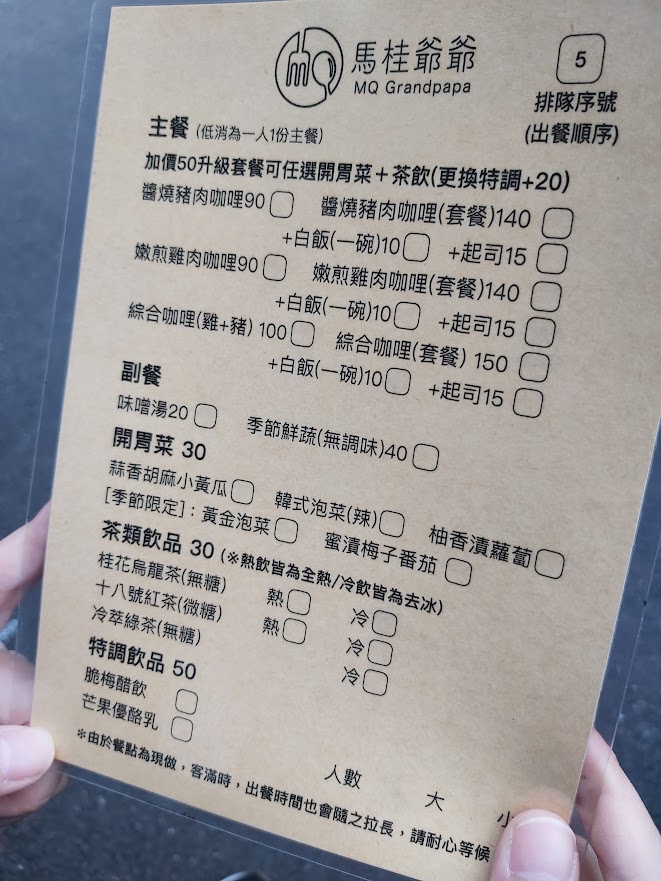 馬桂爺爺
MQ Grandpapa
5
排隊序號
(出餐順序)
主餐 (低消為一人1份主餐)
加價50升級套餐可任選開胃菜＋茶飲(更換特調+20)
醬燒豬肉咖哩90 醬燒豬肉咖哩(套餐)140
+白飯(一碗)10 +起司15
嫩煎雞肉咖哩90 嫩煎雞肉咖哩(套餐)140
+白飯(一碗)10 +起司15
綜合咖哩(雞+豬) 100 綜合咖哩(套餐) 150
+白飯(一碗)10 +起司15
副餐
味噌湯20 季節鮮蔬(無調味)40
開胃菜 30
蒜香胡麻小黃瓜 韓式泡菜(辣) 柚香漬蘿蔔
[季節限定]：黃金泡菜 蜜漬梅子番茄
茶類飲品 30 (※熱飲皆為全熱/冷飲皆為去冰)
桂花烏龍茶(無糖) 熱 冷
十八號紅茶(微糖) 熱 冷
冷萃綠茶(無糖) 冷
特調飲品 50
脆梅醋飲
芒果優酪乳
人數 大 小
※由於餐點為現做，客滿時，出餐時間也會隨之拉長，請耐心等候